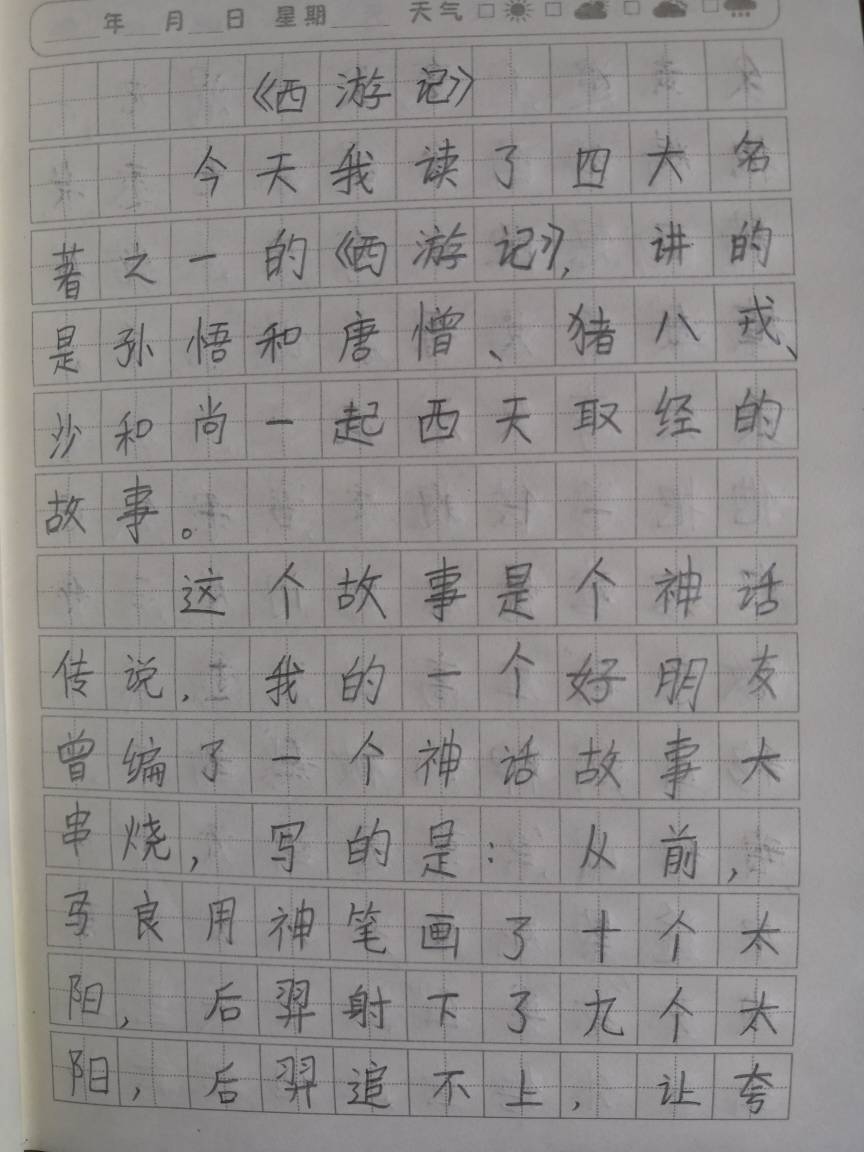 年 月 日 星期 天气
《西游记》
今天我读了四大名
著之一的《西游记》，讲的
是孙悟和唐憎、猪八戎、
沙和尚一起西天取经的
故事。
这个故事是个神话
传说，我的一个好朋友
曾编了一个神话故事大
串烧，写的是：从前，
马良用神笔画了十个太
阳，后羿射下了九个太
阳，后羿追不上，让夸